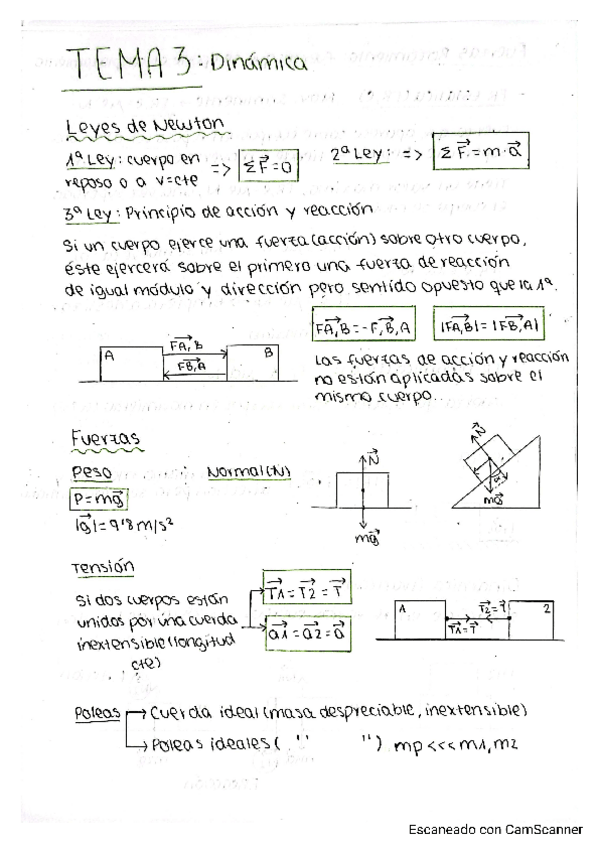 TEMA 3: Dinámica
Leyes de Newton
1ª Ley: cuerpo en reposo o a v=cte => ΣF⃗=0
2ª Ley: => ΣF⃗=m·a⃗
3ª Ley: Principio de acción y reacción
Si un cuerpo ejerce una fuerza (acción) sobre otro cuerpo,
éste ejercerá sobre el primero una fuerza de reacción
de igual módulo y dirección pero sentido opuesto que la 1ª.
F⃗A,B = -F⃗B,A
|F⃗A,B| = |F⃗B,A|
A F⃗A,B B
F⃗B,A
Las fuerzas de acción y reacción
no están aplicadas sobre el
mismo cuerpo...
Fuerzas
Peso
P=mg⃗
|g⃗|=9'8 m/s²
Normal (N)
N⃗
mg⃗
N⃗
α
mg⃗
Tensión
Si dos cuerpos están
unidos por una cuerda
inextensible (longitud
cte)
T⃗1 = T⃗2 = T⃗
a⃗1 = a⃗2 = a⃗
1 T⃗2=T⃗ 2
T⃗1=T⃗
Poleas → Cuerda ideal (masa despreciable, inextensible)
→ Poleas ideales ( '' '' ) mp <<< m1, m2
Escaneado con CamScanner